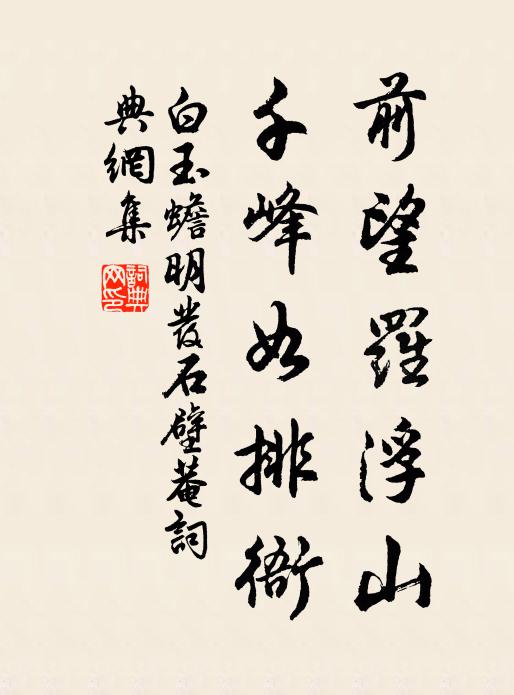 前望羅浮山
千峰如排衙
白玉蟾明發石壁菴詞
典網集
詞典網印